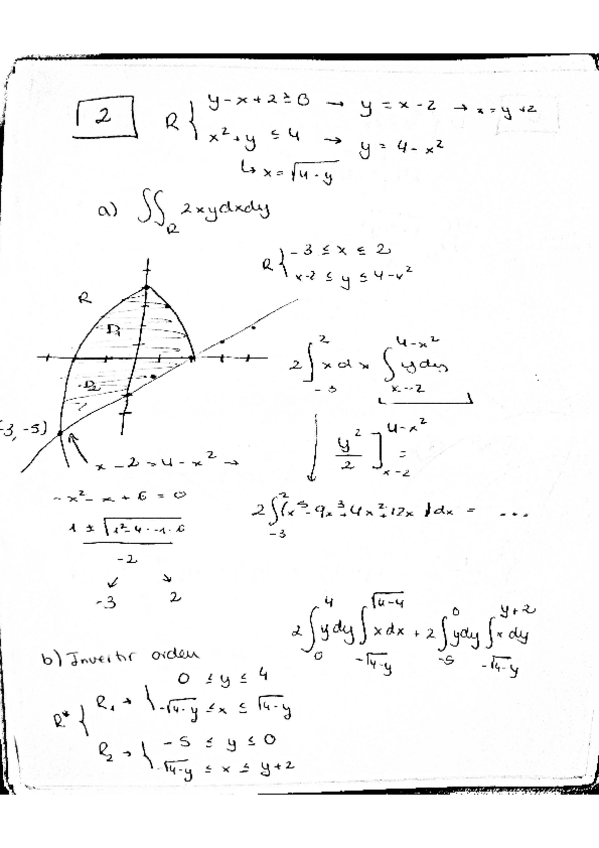 2
R { y-x+2≥0 → y = x-2 → x=y+2
x²+y ≤ 4 → y = 4-x²
↳ x=√4-y
a) ∬_R 2xydxdy
R { -3 ≤ x ≤ 2
x-2 ≤ y ≤ 4-x²
R
2 ∫_{-3}^{2} x dx ∫_{x-2}^{4-x²} ydy
-3, -5)
y²/2 ]_{x-2}^{4-x²} =
x-2=4-x² →
-x²-x+6=0
2 ∫_{-3}^{2} (x⁵-9x³+4x²+12x)dx = ...
-2
-3 2
2 ∫_{0}^{4} ydy ∫_{-√4-y}^{√4-y} xdx + 2 ∫_{-5}^{0} ydy ∫_{-√4-y}^{y+2} x dy
b) Invertir orden
R* { R₁ → { 0 ≤ y ≤ 4
-√4-y ≤ x ≤ √4-y
R₂ → { -5 ≤ y ≤ 0
-√4-y ≤ x ≤ y+2